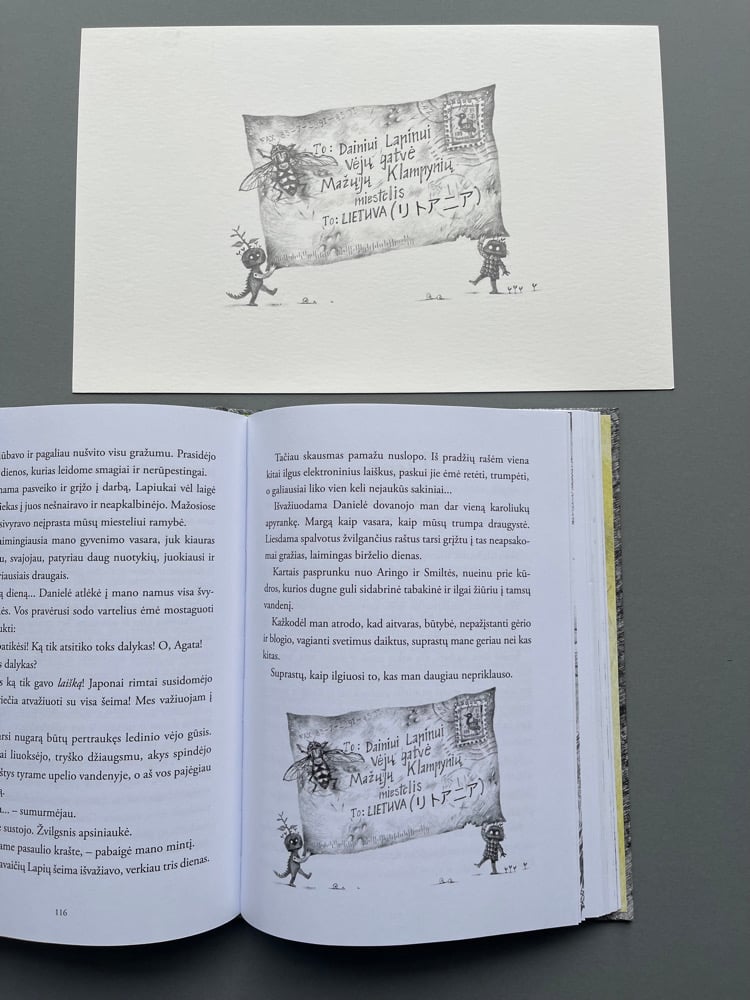 To: Dainiui Lapinui
Vėjų gatvė
Mažųjų Klampynių
miestelis
To: LIETUVA (リトアニア)
ūbavo ir pagaliau nušvito visu gražumu. Prasidėjo
dienos, kurias leidome smagiai ir nerūpestingai.
nama pasveiko ir grįžo į darbą, Lapiukai vėl laigė
iekas į juos nešnairavo ir neapkalbinėjo. Mažosiose
sivyravo neįprasta mūsų miesteliui ramybė.
aimingiausia mano gyvenimo vasara, juk kiauras
u, svajojau, patyriau daug nuotykių, juokiausi ir
riausiais draugais.
ą dieną... Danielė atlėkė į mano namus visa švy-
ės. Vos pravėrusi sodo vartelius ėmė mostaguoti
ukti:
patikėsi! Ką tik atsitiko toks dalykas! O, Agata!
s dalykas?
s ką tik gavo laišką! Japonai rimtai susidomėjo
riečia atvažiuoti su visa šeima! Mes važiuojam į
arsi nugarą būtų pertraukęs ledinio vėjo gūsis.
ai liuoksėjo, tryško džiaugsmu, akys spindėjo
štys tyrame upelio vandenyje, o aš vos pajėgiau
ą.
a... – sumurmėjau.
sustojo. Žvilgsnis apsiniaukė.
ame pasaulio krašte, – pabaigė mano mintį.
avaičių Lapių šeima išvažiavo, verkiau tris dienas.
116
Tačiau skausmas pamažu nuslopo. Iš pradžių rašėm viena
kitai ilgus elektroninius laiškus, paskui jie ėmė retėti, trumpėti,
o galiausiai liko vien keli nejaukūs sakiniai...
Išvažiuodama Danielė dovanojo man dar vieną karoliukų
apyrankę. Margą kaip vasara, kaip mūsų trumpa draugystė.
Liesdama spalvotus žvilgančius raštus tarsi grįžtu į tas neapsako-
mai gražias, laimingas birželio dienas.
Kartais pasprunku nuo Aringo ir Smiltės, nueinu prie kū-
dros, kurios dugne guli sidabrinė tabakinė ir ilgai žiūriu į tamsų
vandenį.
Kažkodėl man atrodo, kad aitvaras, būtybė, nepažįstanti gėrio
ir blogio, vagianti svetimus daiktus, suprastų mane geriau nei kas
kitas.
Suprastų, kaip ilgiuosi to, kas man daugiau nepriklauso.
To: Dainiui Lapinui
Vėjų gatvė
Mažųjų Klampynių
miestelis
To: LIETUVA (リトアニア)